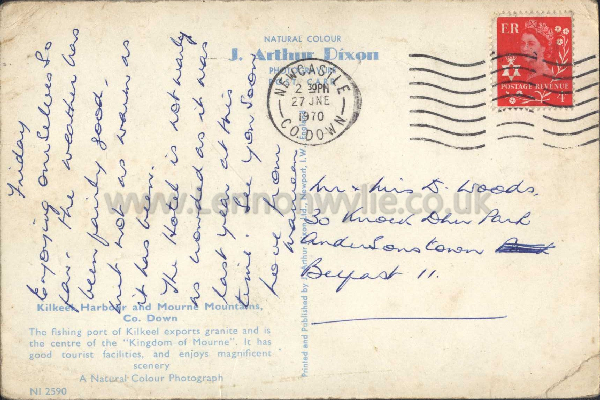 NATURAL COLOUR
J. Arthur Dixon
PHOTOGRAPHIC
POST CARD
NEWCASTLE
2 30PM
27 JNE
1970
CO. DOWN
E R
POSTAGE REVENUE
Friday
Enjoying ourselves so
far. The weather has
been fairly good.
but not as warm as
it has been.
The Hotel is not nearly
as crowded as it was
last year at this
time. See you soon
Love from
Maureen
Mr & Mrs D. Woods,
30 Knock Dhu Park
Andersonstown
Belfast 11.
www.Lennonwylie.co.uk
Printed and Published by J. Arthur Dixon Ltd., Newport, I.W., England
Kilkeel Harbour and Mourne Mountains,
Co. Down
The fishing port of Kilkeel exports granite and is
the centre of the "Kingdom of Mourne". It has
good tourist facilities, and enjoys magnificent
scenery
A Natural Colour Photograph
NI 2590